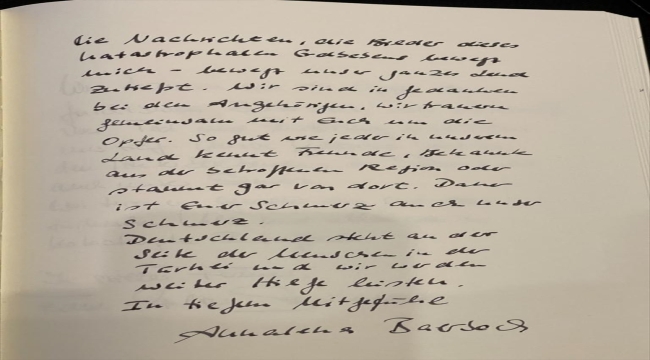 Die Nachrichten, die Bilder dieses
katastrophalen Erdbebens bewegt
mich - bewegt unser ganzes Land
zutiefst. Wir sind in Gedanken
bei den Angehörigen, wir trauern
gemeinsam mit Euch um die
Opfer. So gut wie jeder in unserem
Land kennt Freunde, Bekannte
aus der betroffenen Region oder
stammt gar von dort. Daher
ist Euer Schmerz auch unser
Schmerz.
Deutschland steht an der
Seite der Menschen in der
Türkei und wir werden
weiter Hilfe leisten.
In tiefem Mitgefühl
Annalena Baerbock